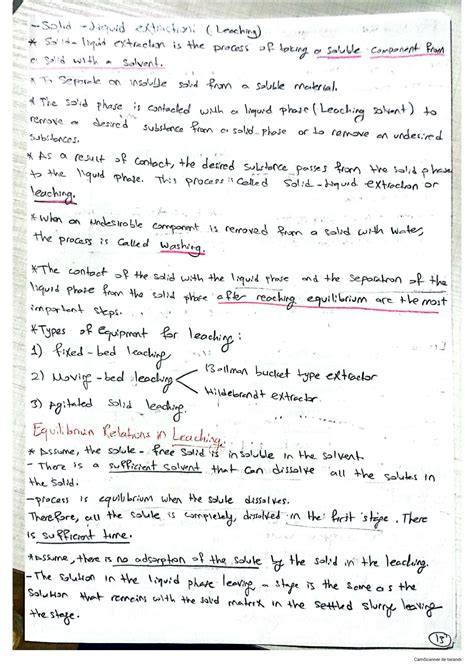 - Solid - Liquid extraction (Leaching)
* Solid-liquid extraction is the process of taking a soluble component from
a solid with a solvent.
* To Separate an insoluble solid from a soluble material.
* The solid phase is contacted with a liquid phase (Leaching solvent) to
remove a desired substance from a solid phase or to remove an undesired
substances.
* As a result of contact, the desired substance passes from the solid phase
to the liquid phase. This process is called Solid-liquid extraction or
leaching.
* When an undesirable component is removed from a solid with water,
the process is called washing.
* The contact of the solid with the liquid phase and the separation of the
liquid phase from the solid phase after reaching equilibrium are the most
important steps.
* Types of equipment for leaching :
1) fixed-bed leaching
2) Moving-bed leaching
Bollman bucket type extractor
Hildebrandt extractor
3) Agitated solid leaching.
Equilibrium Relations in Leaching.
* Assume, the solute-free solid is insoluble in the solvent.
- There is a sufficient solvent that can dissolve all the solutes in
the solid.
- process is equilibrium when the solute dissolves.
Therefore, all the solute is completely, dissolved in the first stage. There
is sufficient time.
* Assume, there is no adsorption of the solute by the solid in the leaching.
- The solution in the liquid phase leaving a stage is the same as the
solution that remains with the solid matrix in the settled slurry leaving
the stage.
15
CamScanner ile tarandı